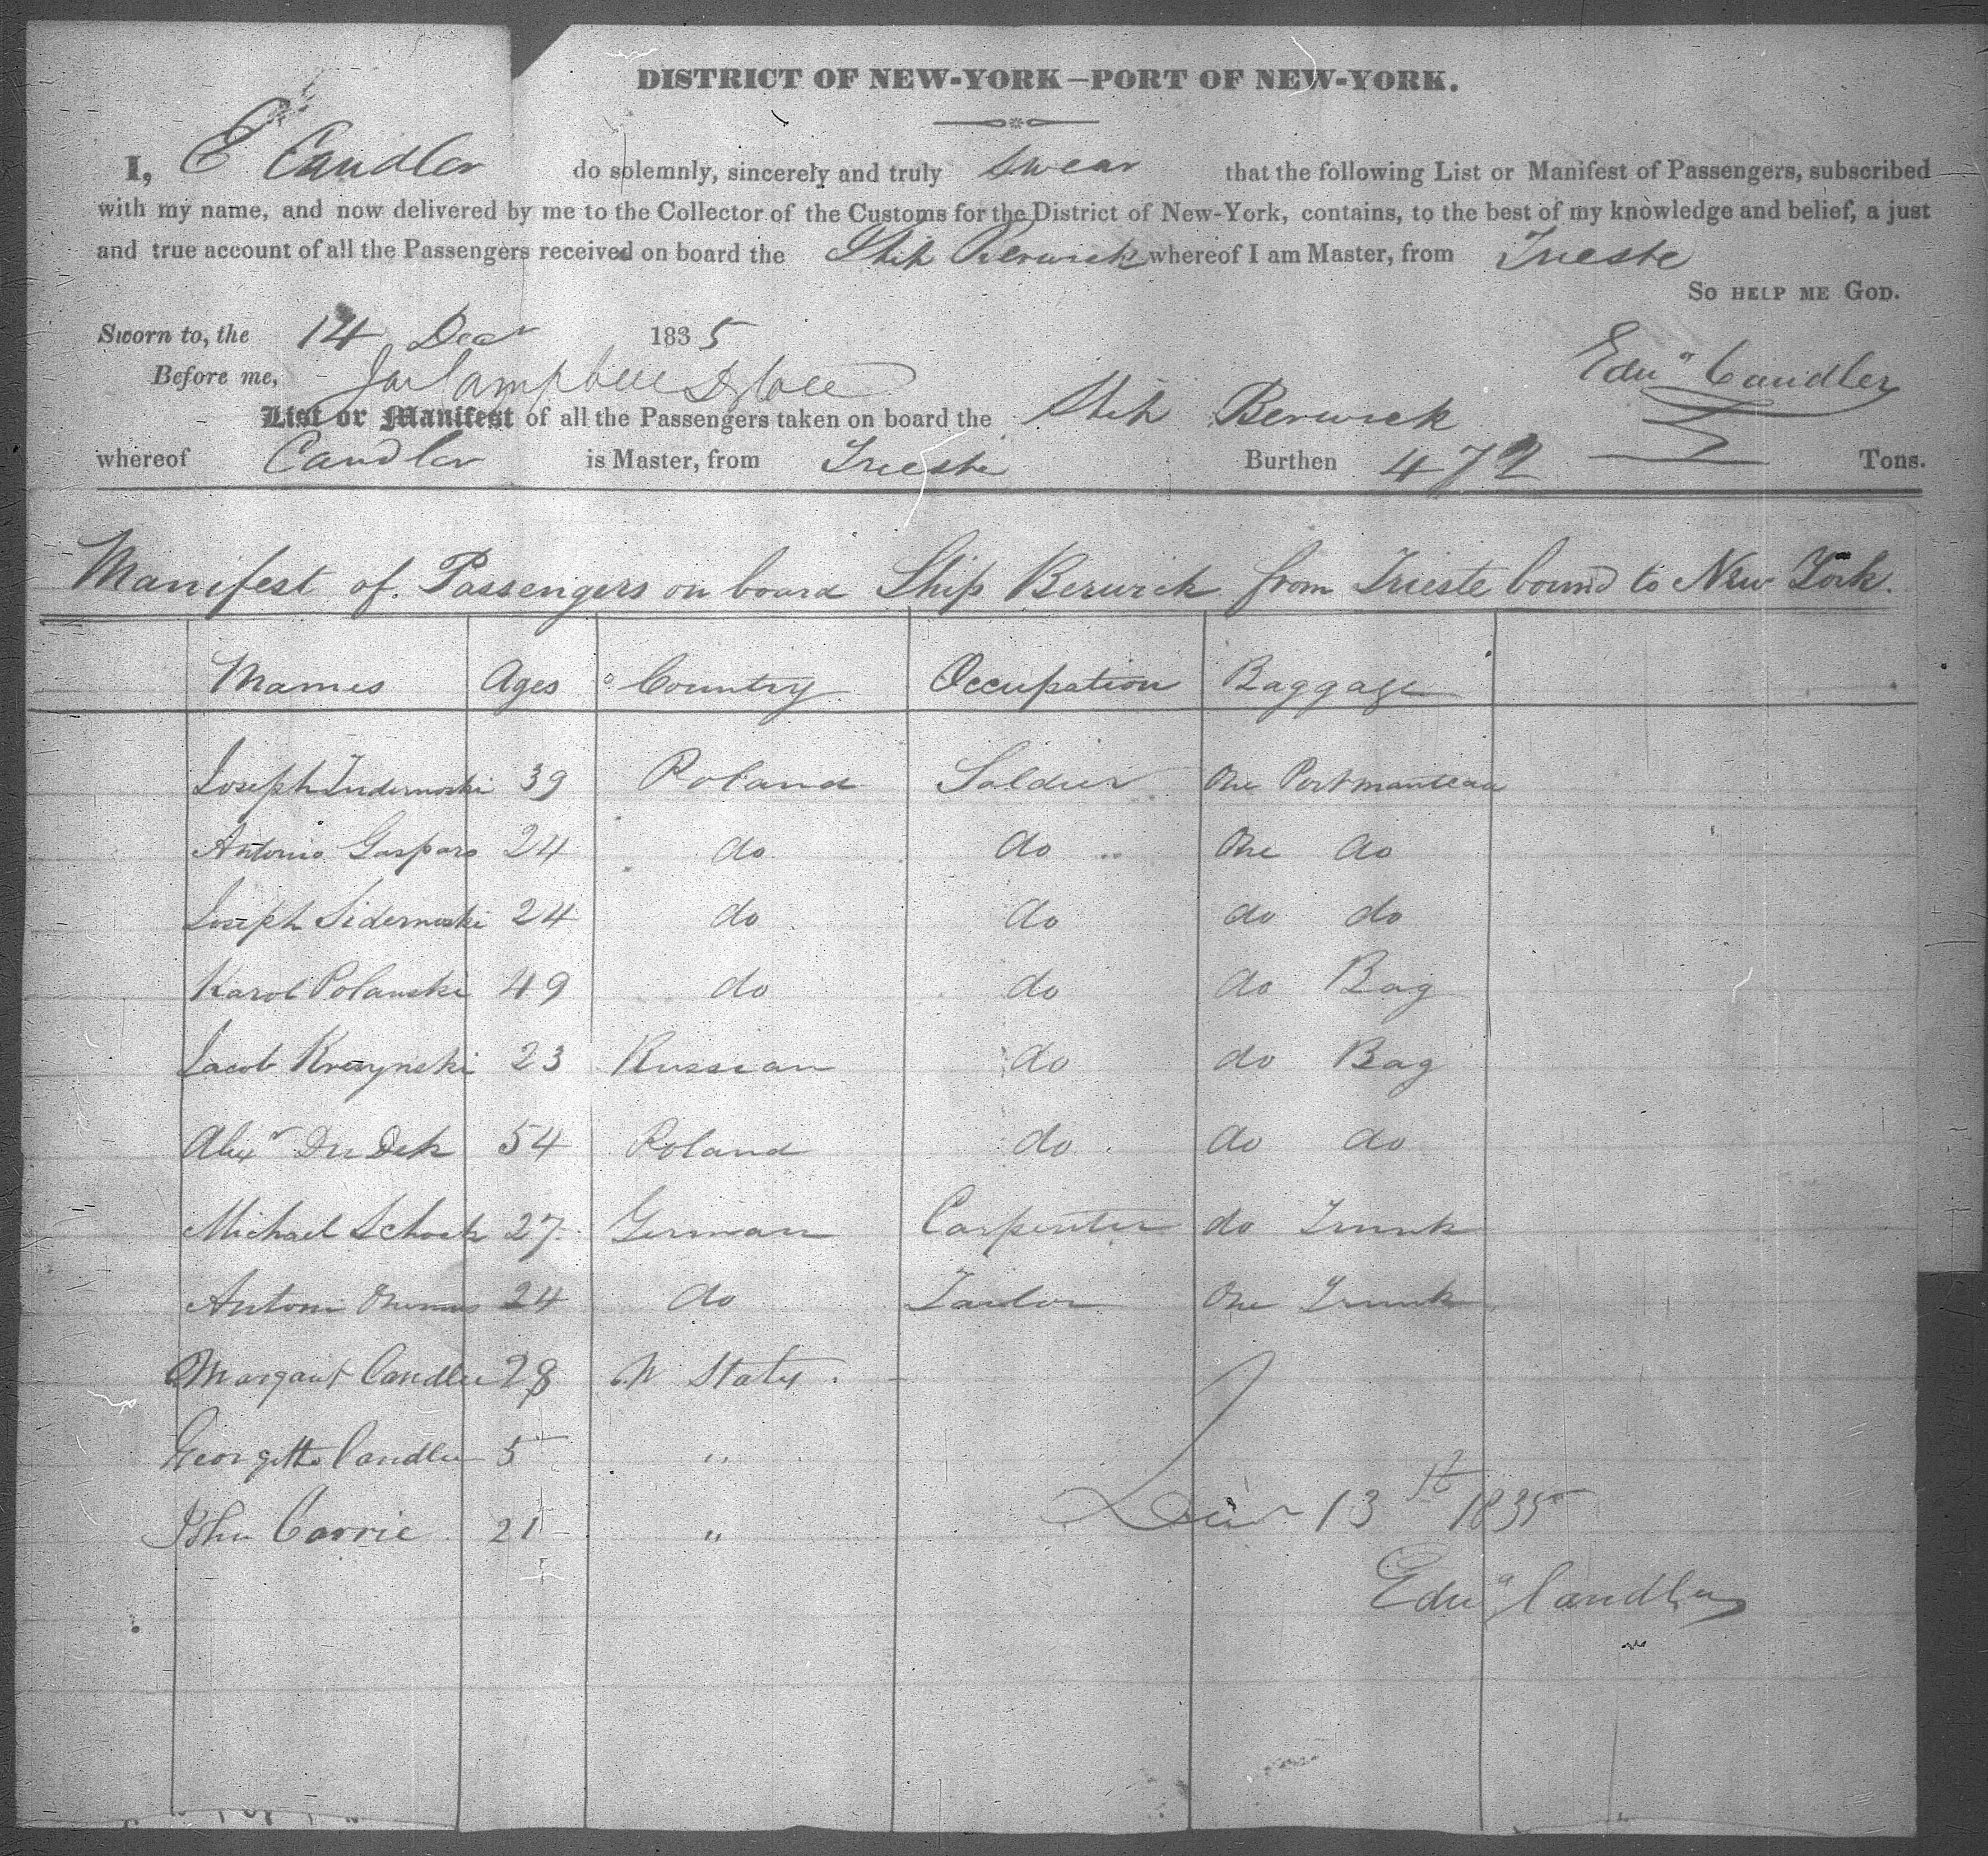 DISTRICT OF NEW-YORK—PORT OF NEW-YORK.
I, E Candler do solemnly, sincerely and truly swear that the following List or Manifest of Passengers, subscribed
with my name, and now delivered by me to the Collector of the Customs for the District of New-York, contains, to the best of my knowledge and belief, a just
and true account of all the Passengers received on board the Ship Berwick whereof I am Master, from Trieste
So HELP ME GOD.
Sworn to, the 14 Decr 1835
Edwd Candler
Before me, Jas Campbell
List or Manifest of all the Passengers taken on board the Ship Berwick
whereof Candler is Master, from Trieste Burthen 472 Tons.
Manifest of Passengers on board Ship Berwick from Trieste bound to New York.
Names Ages Country Occupation Baggage
Joseph 39 Poland Soldier One Portmanteau
Antonio Gasparo 24 do do One do
Joseph Sidernoski 24 do do do do
Karol Polanski 49 do do do Bag
Jacob Kresynski 23 Russian do do Bag
Alexr DuDek 54 Poland do do do
Michael Schock 27 German Carpenter do Trunk
Antoni 24 do Tailor One Trunk
Margaret Candler 28 U States
Georgetta Candler 5 "
John Corrie 21 "
Decr 13th 1835
Edwd Candler